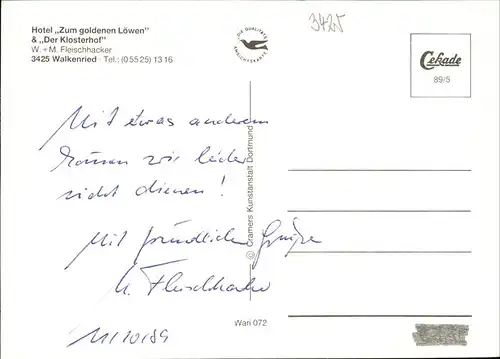 Hotel „Zum goldenen Löwen"
& „Der Klosterhof"
W. + M. Fleischhacker
3425 Walkenried · Tel.: (0 55 25) 13 16
DIE QUALITÄTS
ANSICHTSKARTE
3425
Cekade
89/5
Mit etwas anderem
können wir leider
nicht dienen!
Mit freundlichen Grüßen
M. Fleischhacker
11/10/89
© Cramers Kunstanstalt Dortmund
Wari 072